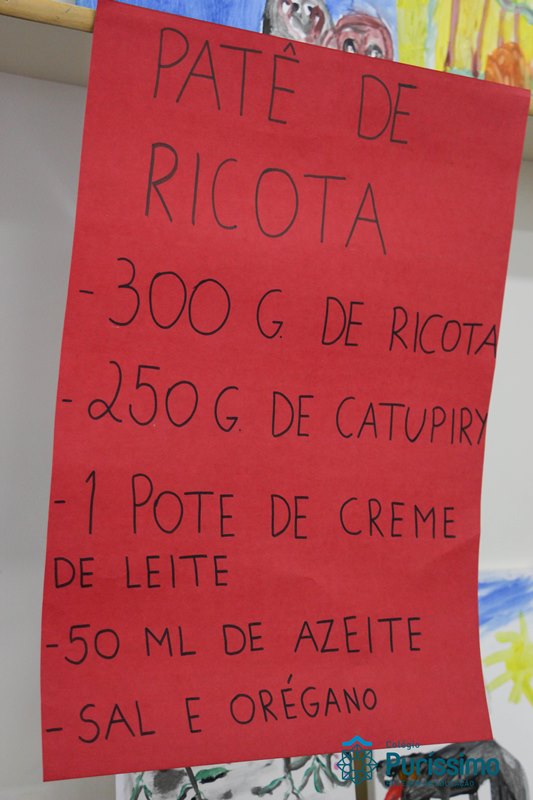 PATÊ DE
RICOTA
- 300 G. DE RICOTA
- 250 G. DE CATUPIRY
- 1 POTE DE CREME
DE LEITE
- 50 ML DE AZEITE
- SAL E ORÉGANO
Colégio
Puríssimo